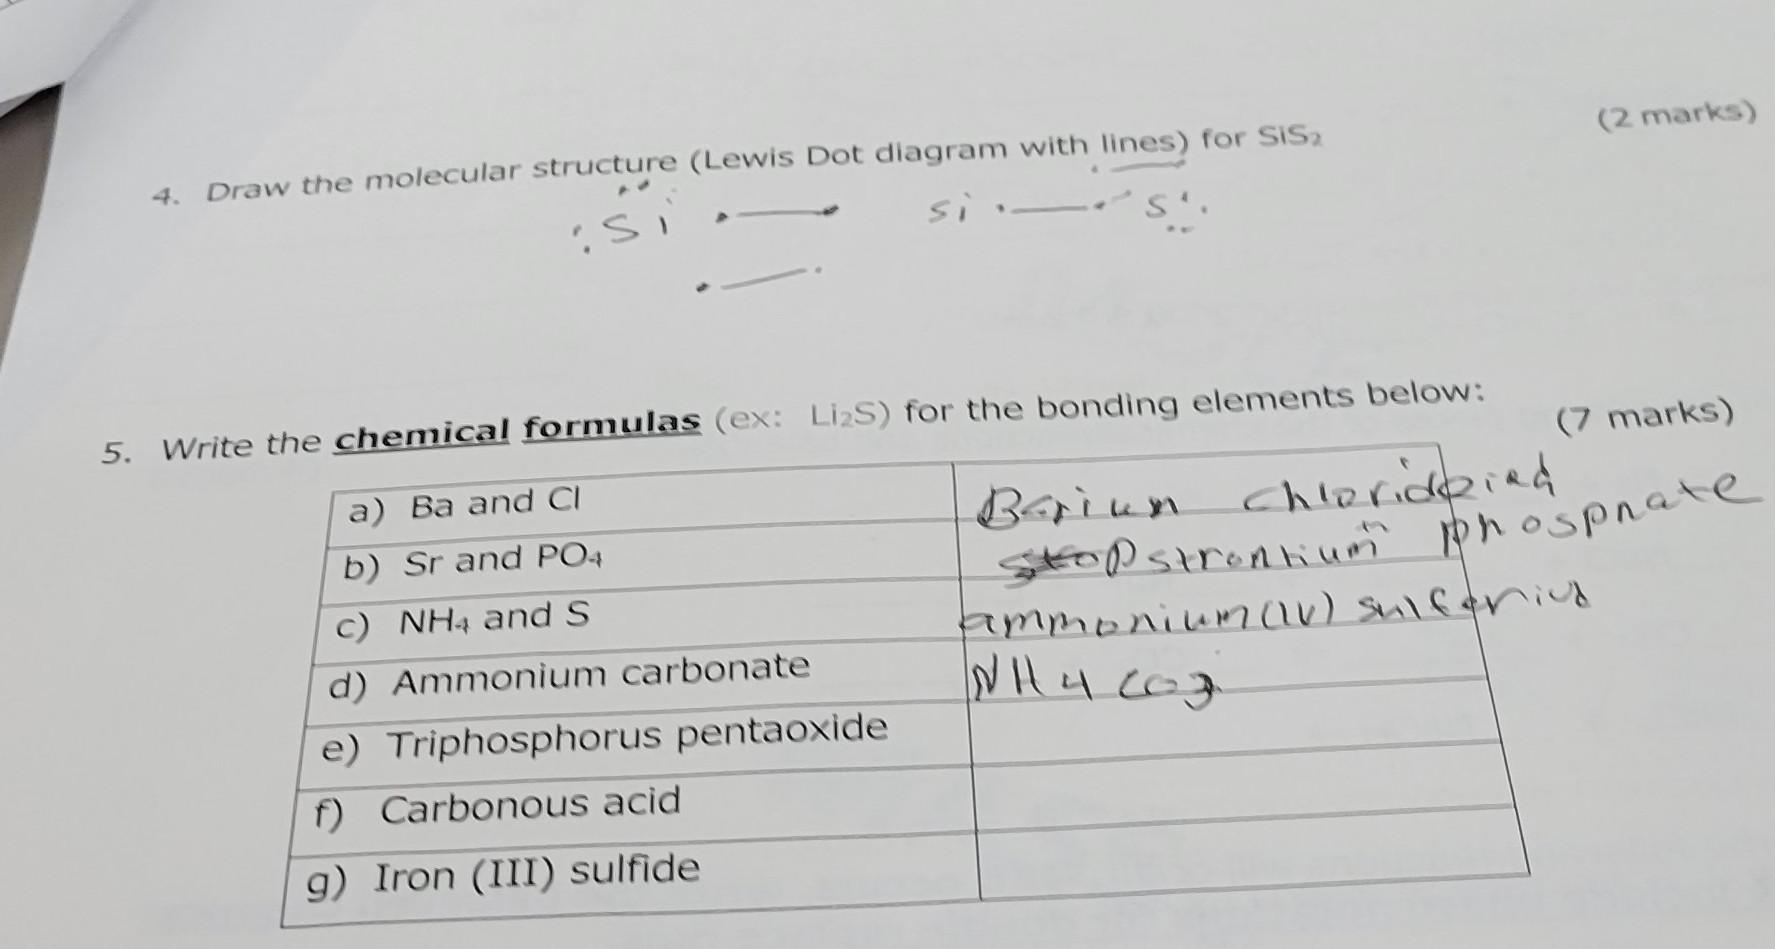 (2 marks)
4. Draw the molecular structure (Lewis Dot diagram with lines) for SiS₂
Si si S
5. Write the chemical formulas (ex: Li₂S) for the bonding elements below:
(7 marks)
a) Ba and Cl Barium chloride
b) Sr and PO₄ strontium phosphate
c) NH₄ and S ammonium(IV)
d) Ammonium carbonate NH4 CO3
e) Triphosphorus pentaoxide
f) Carbonous acid
g) Iron (III) sulfide